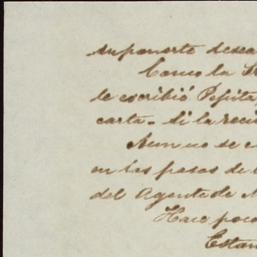 suponerte desea
Como la Sr
le escribió Pepita
carta - si la reci
Aun no se e
en las pasas de
del Agente de
Hace poco
Estan